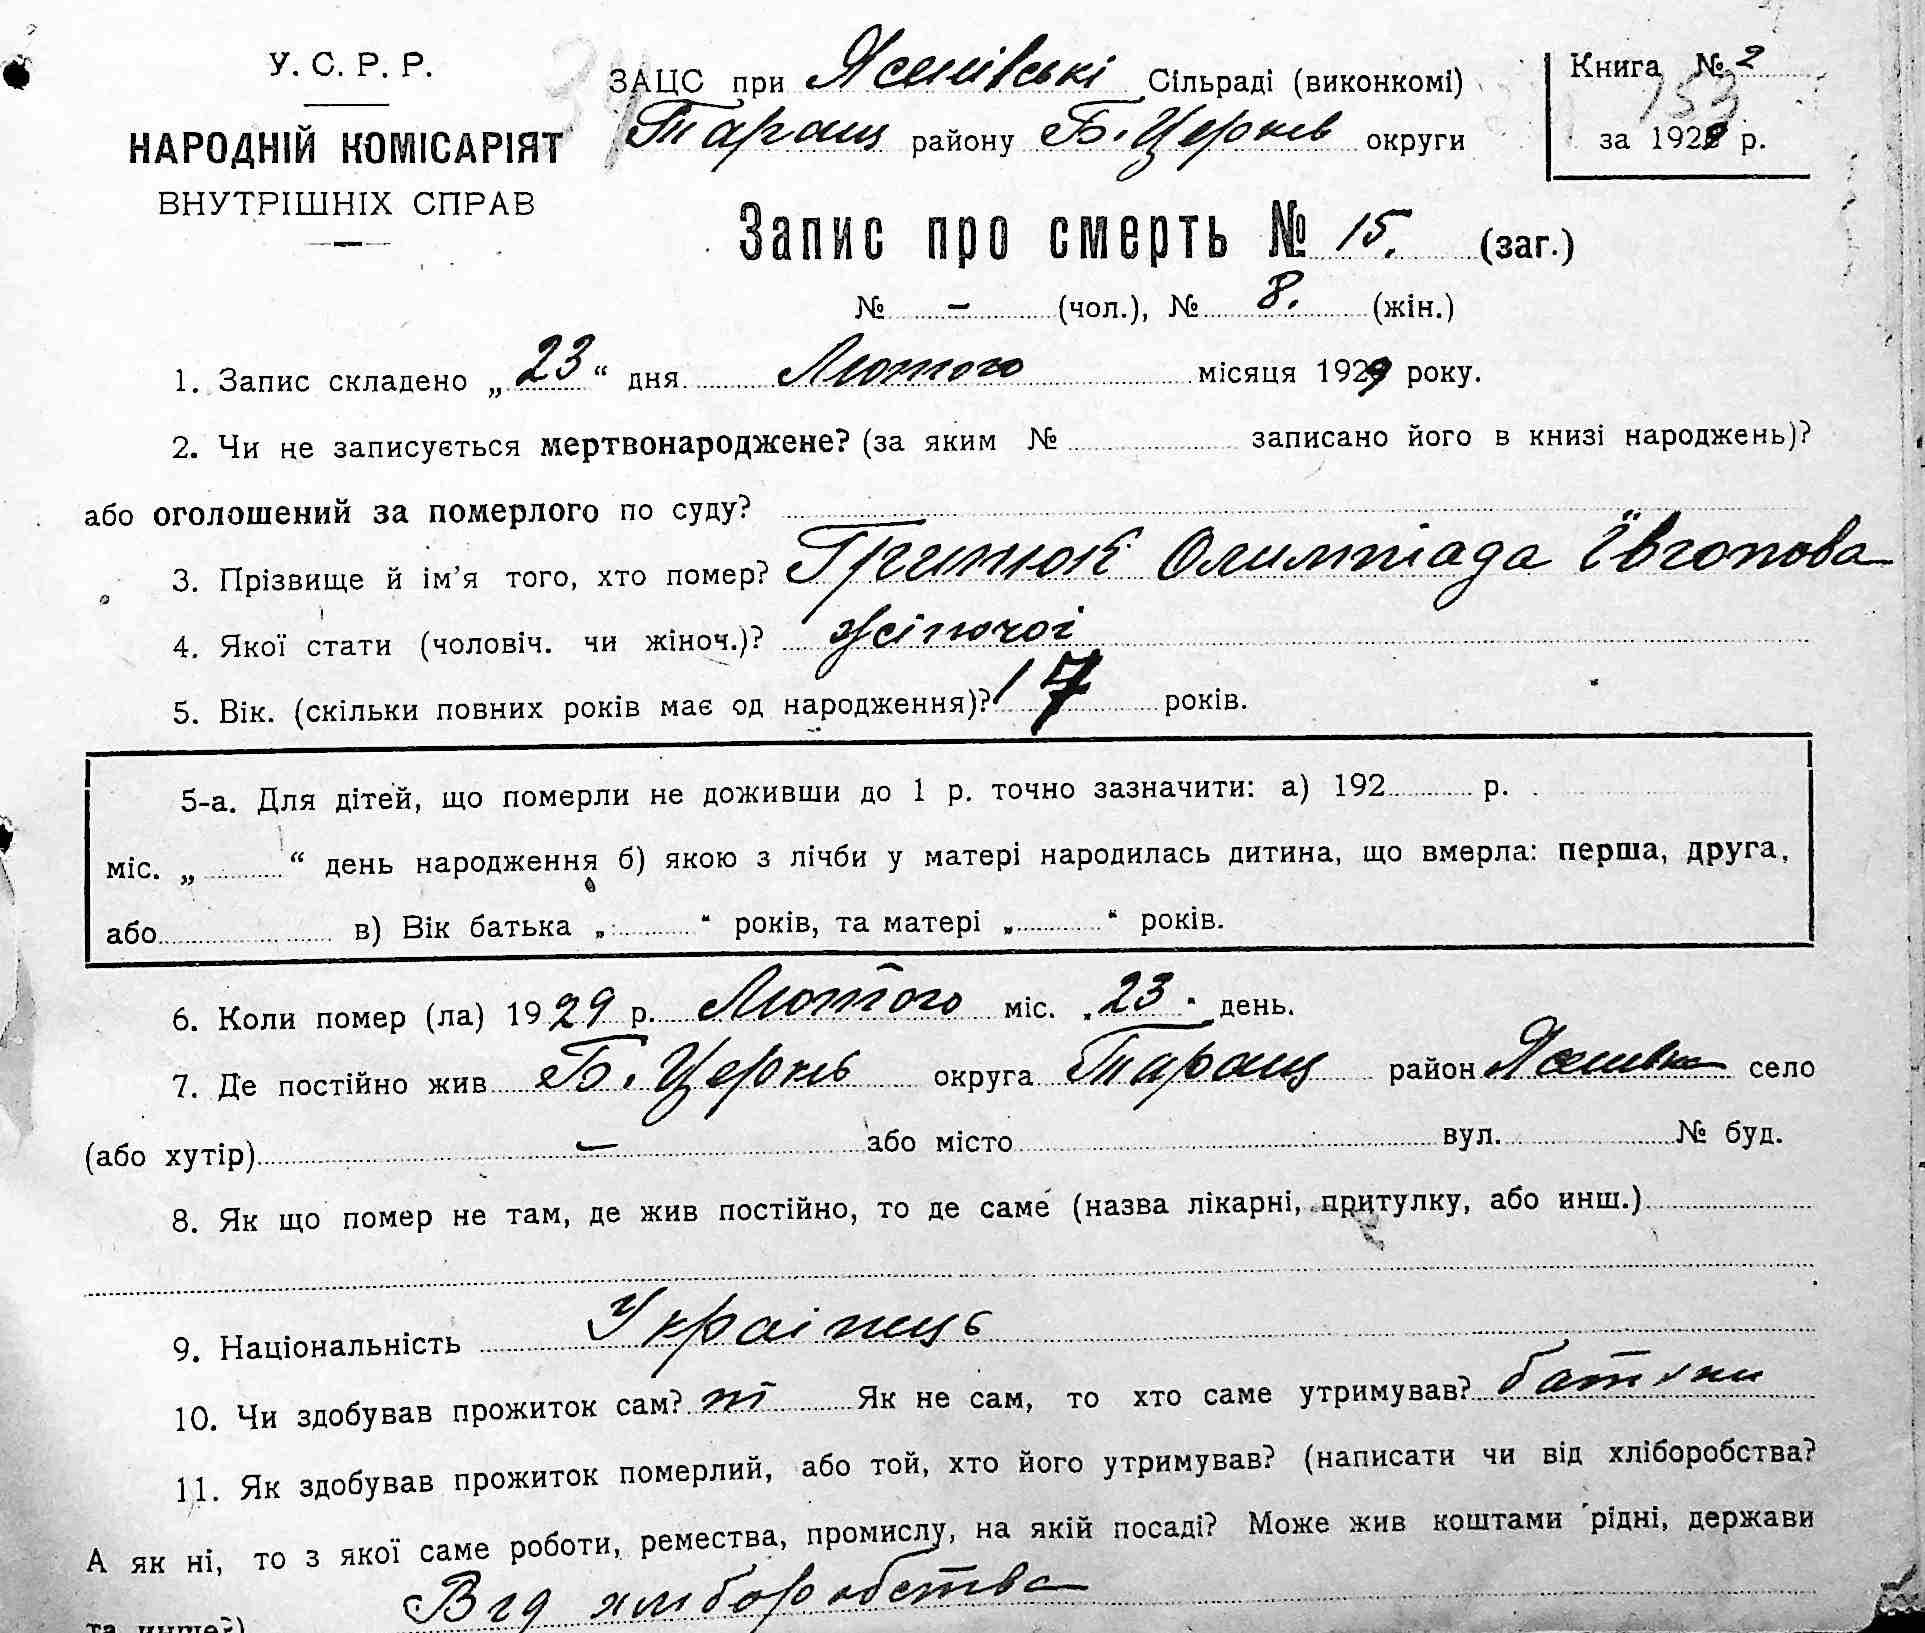 У. С. Р. Р.
НАРОДНІЙ КОМІСАРІЯТ
ВНУТРІШНІХ СПРАВ
ЗАЦС при Ясенівські Сільраді (виконкомі)
Таращ району Б. Церків округи
Книга № 2
153
за 1929 р.
Запис про смерть № 15. (заг.)
№ – (чол.), № 8. (жін.)
1. Запис складено „23“ дня Лютого місяця 1929 року.
2. Чи не записується мертвонароджене? (за яким № записано його в книзі народжень)?
або оголошений за померлого по суду?
3. Прізвище й ім’я того, хто помер? Гринюк Олимпіада
4. Якої стати (чоловіч. чи жіноч.)? жіночоі
5. Вік. (скільки повних років має од народження)? 17 років.
5-а. Для дітей, що померли не доживши до 1 р. точно зазначити: а) 192 р.
міс. „ “ день народження б) якою з лічби у матері народилась дитина, що вмерла: перша, друга,
або в) Вік батька „ “ років, та матері „ “ років.
6. Коли помер (ла) 1929 р. Лютого міс. „23“ день.
7. Де постійно жив Б. Церків округа Таращ район Ясенівка село
(або хутір) – або місто вул. № буд.
8. Як що помер не там, де жив постійно, то де саме (назва лікарні, притулку, або инш.)
9. Національність Украінець
10. Чи здобував прожиток сам? ні Як не сам, то хто саме утримував? батьки
11. Як здобував прожиток померлий, або той, хто його утримував? (написати чи від хліборобства?
А як ні, то з якої саме роботи, ремества, промислу, на якій посаді? Може жив коштами рідні, держави
та инше?) Від хліборобства